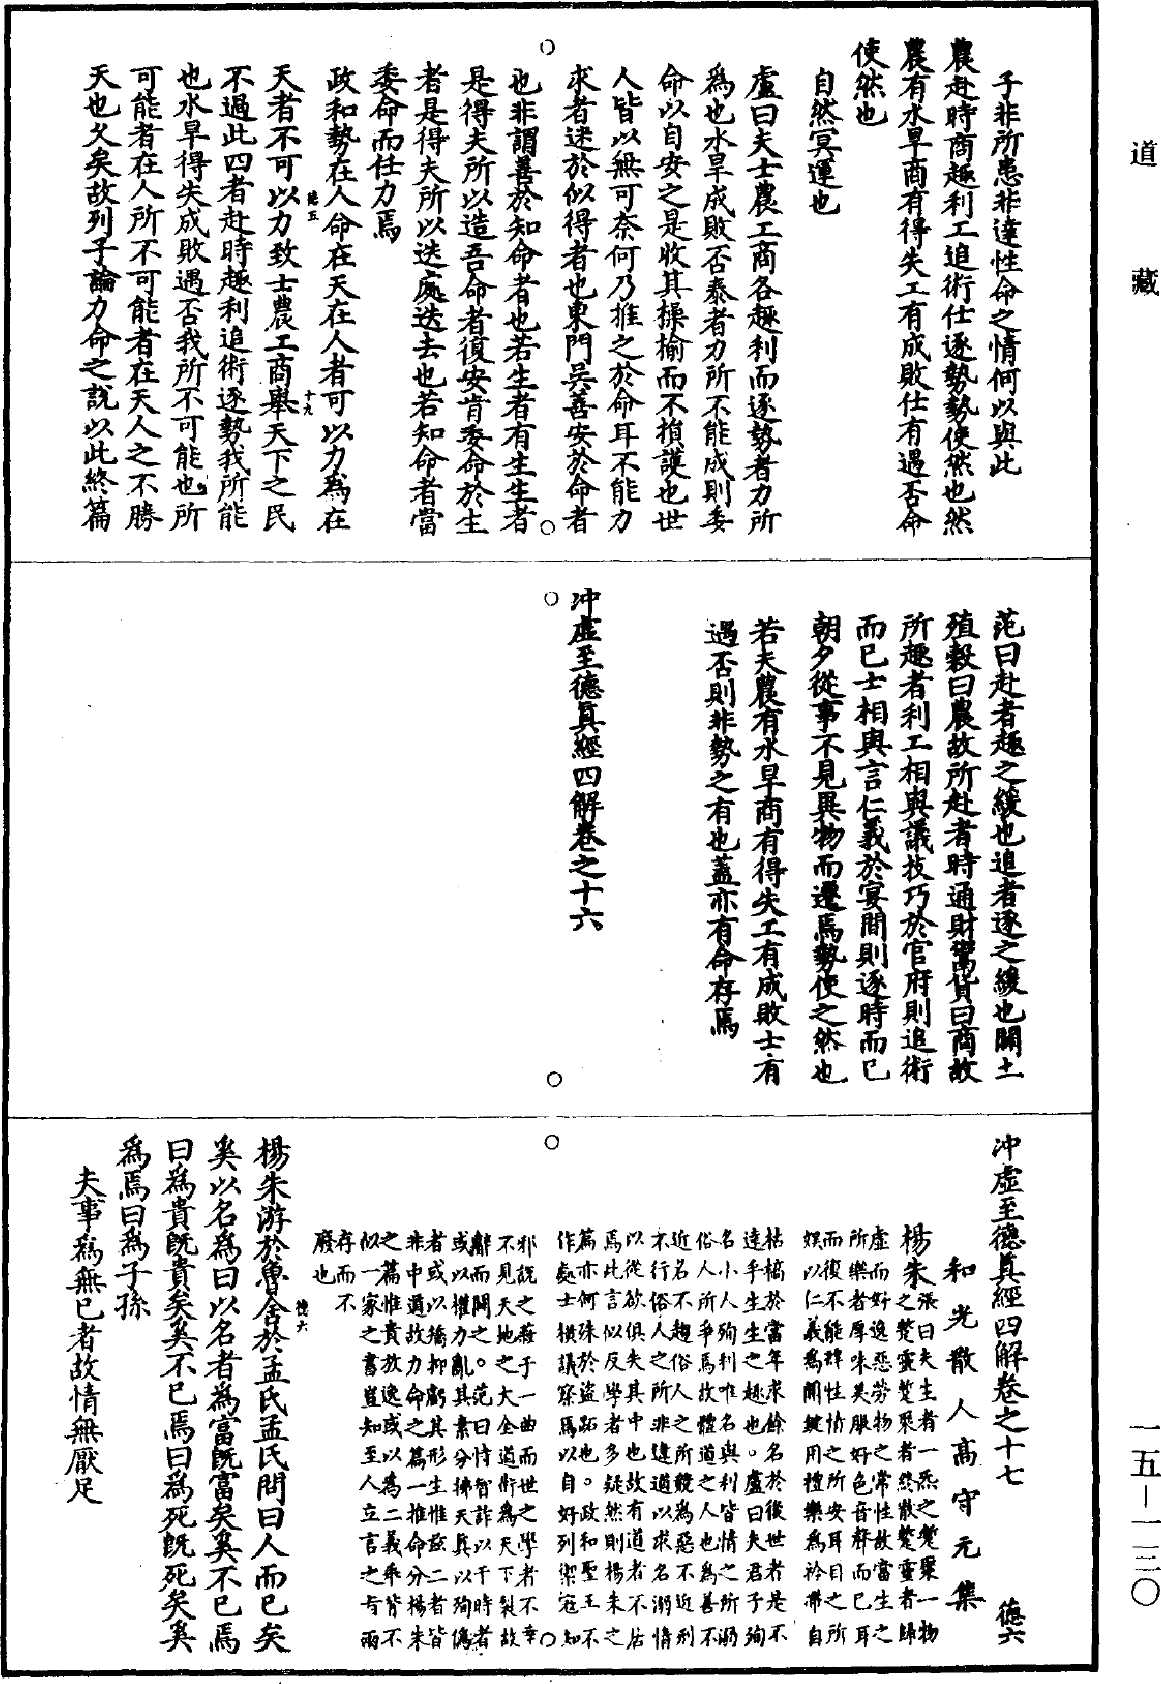 道藏
子非所患非達性命之情何以與此
農赴時商趣利工追術仕逐勢勢使然也然
農有水旱商有得失工有成敗仕有遇否命
使然也
自然冥運也
盧曰夫士農工商各趣利而逐勢者力所
為也水旱成敗否泰者力所不能成則委
命以自安之是收其操榆而不損護也世
人皆以無可奈何乃推之於命耳不能力
求者迷於似得者也東門吳善安於命者
也非謂善於知命者也若生者有生生者
是得夫所以造吾命者復安肯委命於生
者是得夫所以迭處迭去也若知命者當
委命而任力焉
政和勢在人命在天在人者可以力為在
天者不可以力致士農工商舉天下之民
德五
十九
不過此四者赴時趣利追術逐勢我所能
也水旱得失成敗遇否我所不可能也所
可能者在人所不可能者在天人之不勝
天也久矣故列子論力命之說以此終篇
范曰赴者趣之緩也追者逐之緩也闢土
殖穀曰農故所赴者時通財鬻貨曰商故
所趣者利工相與議技巧於官府則追術
而已士相與言仁義於宴間則逐時而已
朝夕從事不見異物而遷焉勢使之然也
若夫農有水旱商有得失工有成敗士有
遇否則非勢之有也蓋亦有命存焉
冲虛至德真經四解卷之十六
冲虛至德真經四解卷之十七 德六
和光散人高守元集
楊朱
張曰夫生者一炁之蹔聚一物
之蹔靈蹔聚者終散蹔靈者歸
虛而好逸惡勞物之常性故當生之
所樂者厚味美服好色音聲而已耳
而復不能肆性情之所安耳目之所
娛以仁義為關鍵用禮樂為衿帶自
枯槁於當年求餘名於後世者是不
達乎生生之趣也。盧曰夫君子殉
名小人殉利唯名與利皆情之所溺
俗人所爭焉故體道之人也為善不
近名不趨俗人之所競為惡不近刑
不行俗人之所非違道以求名溺情
以從欲俱失其中也故有道者不居
焉此言似反學者多疑然則楊朱之
篇亦何殊於盜跖也。政和聖王不
作處士橫議察焉以自好列禦寇知
邪說之蔽于一曲而世之學者不幸
不見天地之大全道術為天下裂故
辭而闢之。范曰恃智詐以干時者
或以權力亂其素分拂天真以殉偽
者或以矯抑虧其形生惟玆二者皆
非中道故力命之篇一推命分楊朱
之篇惟貴放逸或以為二義乖背不
似一家之書豈知至人立言之旨兩
存而不
廢也
楊朱游於魯舍於孟氏孟氏問曰人而已矣
德六
奚以名為曰以名者為富既富矣奚不已焉
曰為貴既貴矣奚不已焉曰為死既死矣奚
為焉曰為子孫
夫事為無已者故情無厭足
一五－一三〇